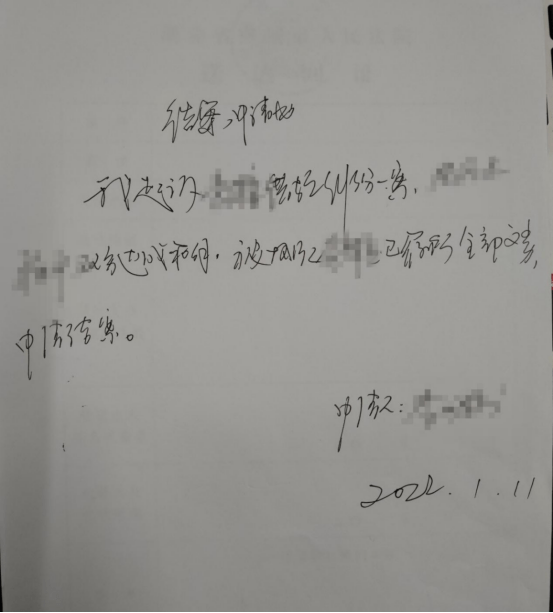 结案申请书
我起诉 借款纠纷一案,
以达成和解,被执行人 已履行全部义务,
申请结案。
申请人:
2022.1.11